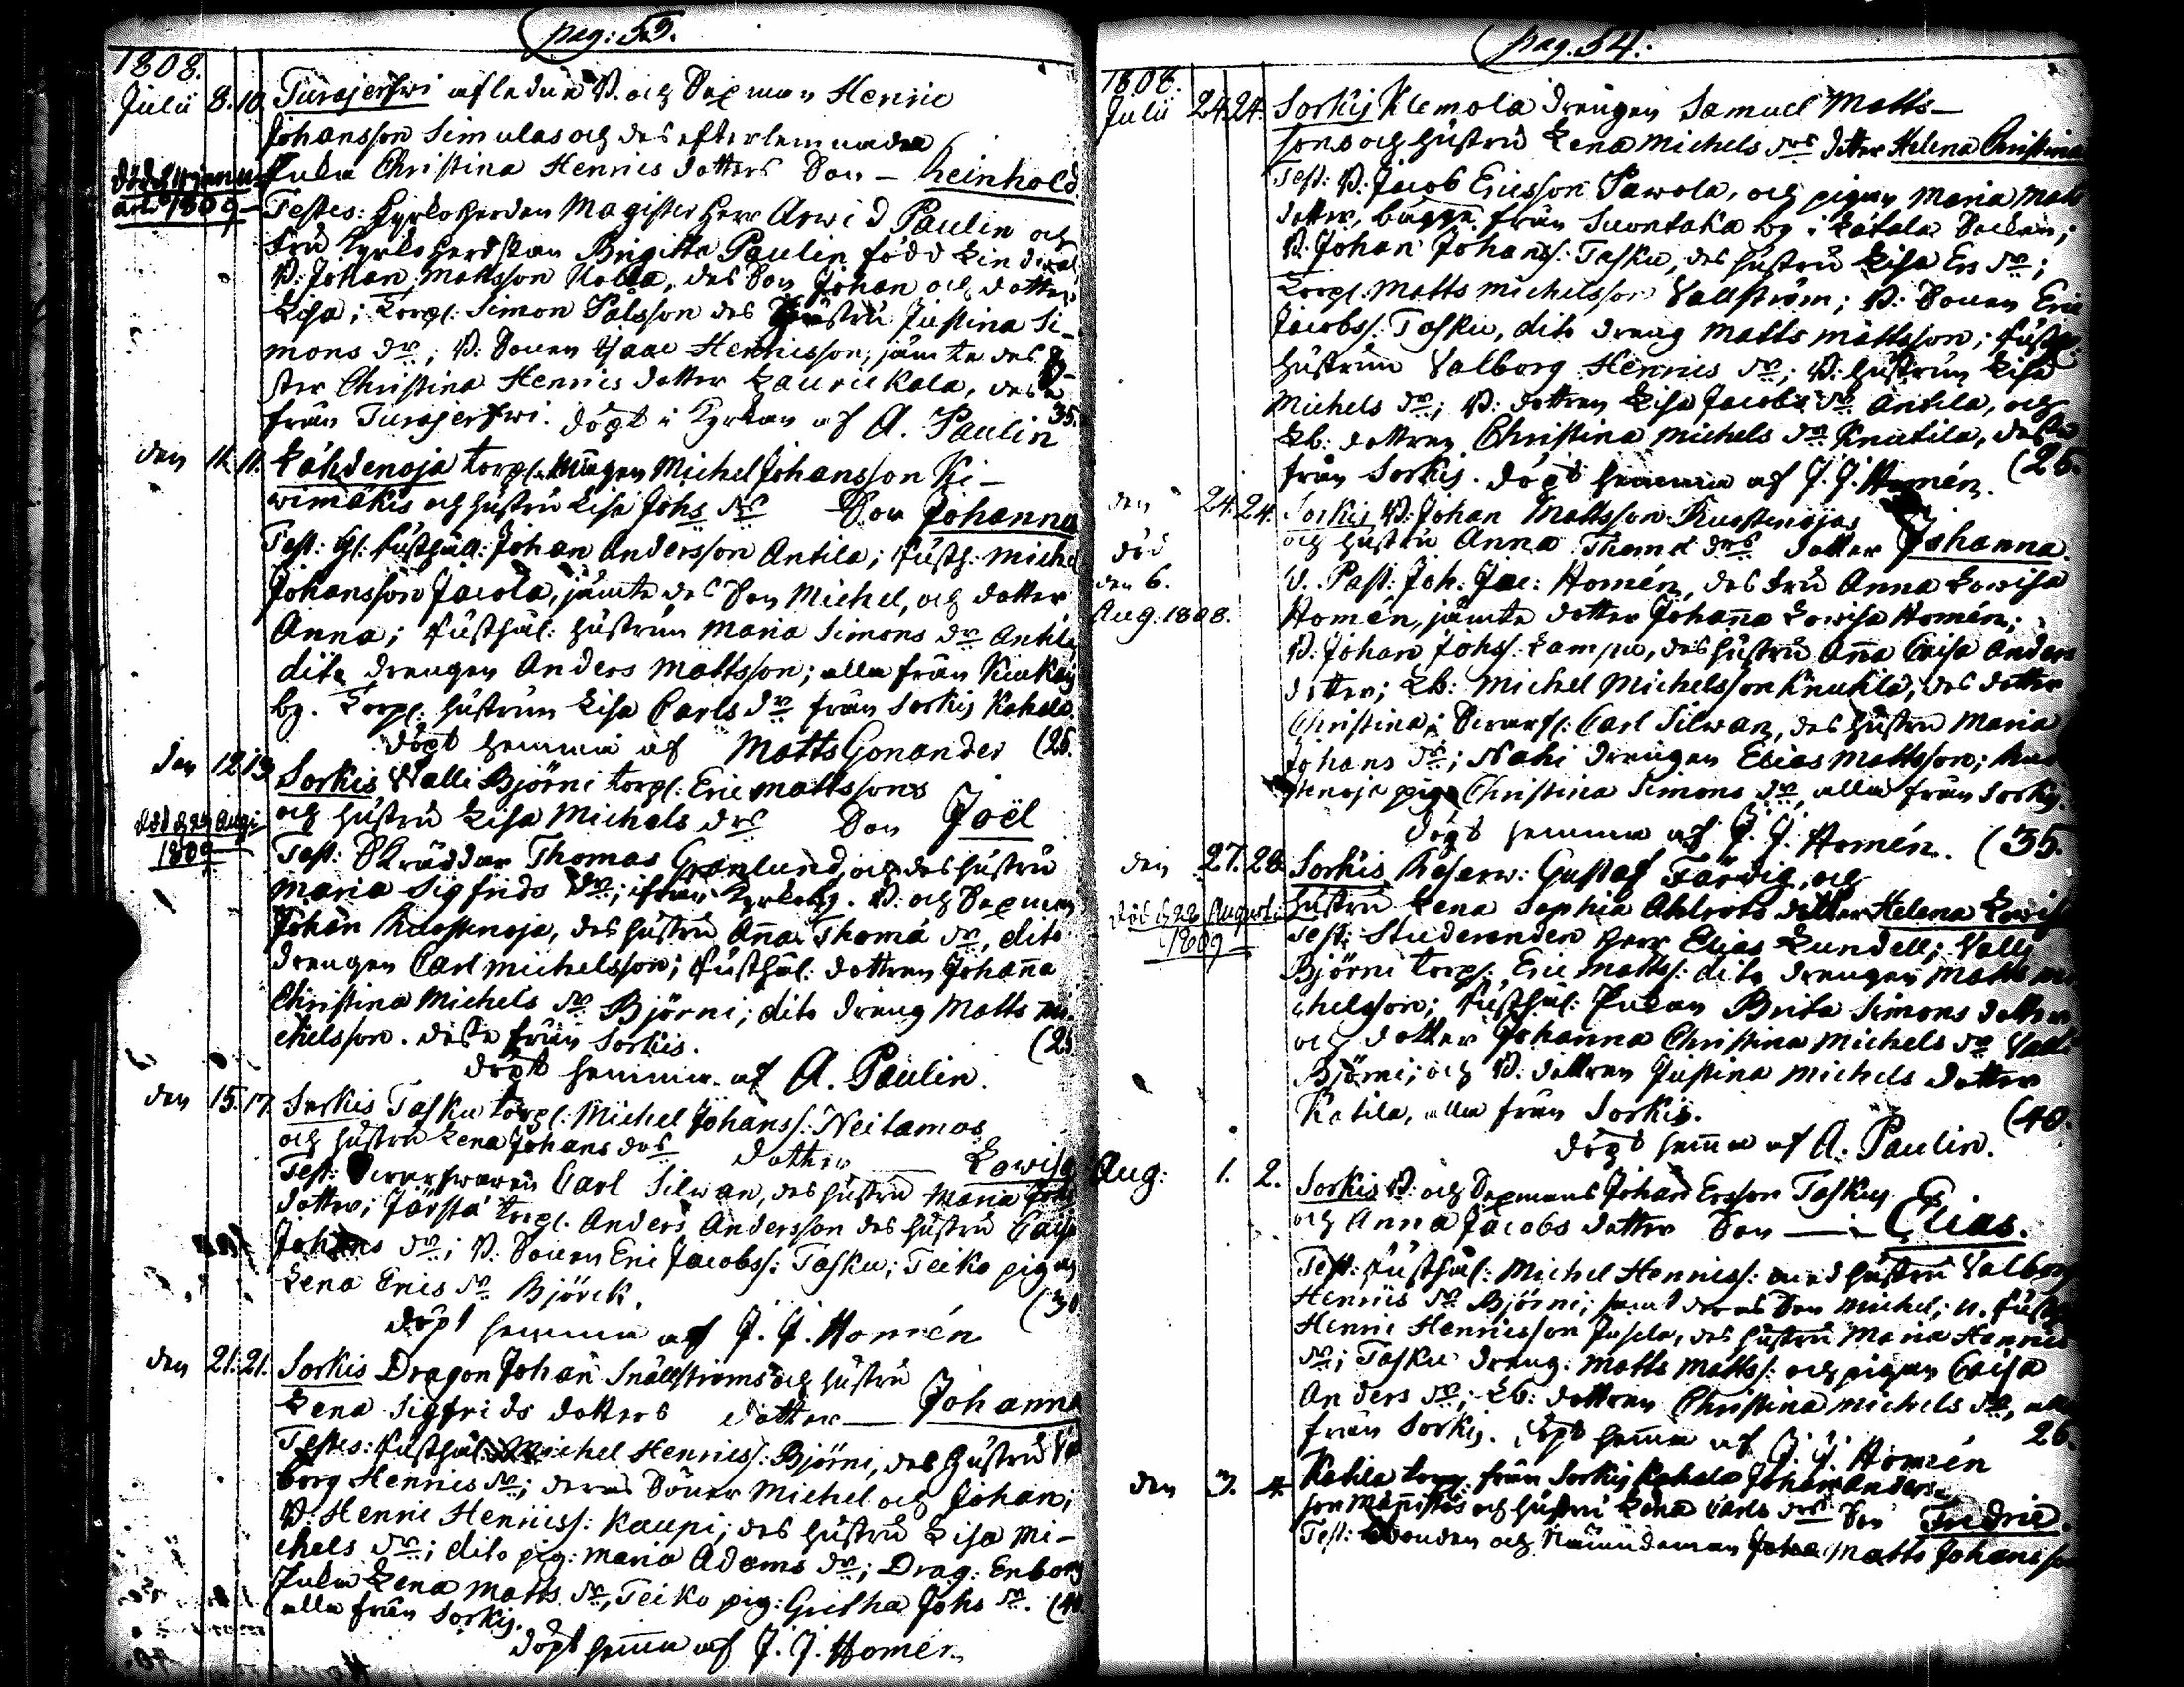 pag: 53.
1808.
Julii 8. 10. Turajerfwi afledne B. och Sexman Henric
Johansson Simulas och des efterlemnade
Enka Christina Henrics dotters Son - Reinhold
död d. 11 januarii 1809
Testes: Kyrkoherden Magister Herr Arwid Paulin och
Fru Kyrkoherdskan Brigitta Paulin född Lindival
B: Johan Mattsson Nolla, des Son Johan och dotter
Lisa; Torpl: Simon Pålsson des Hustru Justina Si-
mons dr; B: Sonen Isaac Henricsson, jämte des Sy-
ster Christina Henrics dotter Laurickala, desse
från Turajerfwi. döpt i Kyrkan af A. Paulin 35.
den 11. 11. Lähdenoja torp. Michel Johansson Ki-
wimäkis och hustru Lisa Johs drs Son Johanna
Test: Gl: Rusthåll: Johan Andersson Antila; Rusth: Michel
Johansson Jacola, jämte des Son Michel, och dotter
Anna; Rusthål: hustrun Maria Simons dr Antila
dito drengen Anders Mattsson; alla från Kuckas
by. Torpl: hustrun Lisa Carls dr från Sorkis Kahala.
döpt hemma af Matts Gonander (25.
den 12. 13. Sorkis Walli Björni torpl: Eric Mattssons
och hustru Lisa Michels drs Son Joël
död d 29 Augi 1809
Test: Skräddar Thomas Grönlund, och des hustru
Maria Sigfrids dr; ifrån Kyrkoby. B. och Sexman
Johan Knostenoja, des hustru Anna Thomæ dr, dito
drengen Carl Michelsson; Rusthål: dottren Johanna
Christina Michels dr Björni; dito dräng Matts Mi-
chelsson. desse från Sorkis. (25.
döpt hemma af A. Paulin.
den 15. 17. Sorkis Tasku torpl: Michel Johanss: Neitamos
och hustru Lena Johans drs dotter Lowisa
Test: Carl Silwan, des hustru Maria Johs
dotter; Järstä torpl. Anders Andersson des hustru Caisa
Johans dr; B. Sonen Eric Jacobss: Tasku; Teiko pigan
Lena Erics dr Björck. (30.
döpt hemma af J. J. Homén
den 21. 21. Sorkis Dragon Johan Snällströms och hustru
Lena Sigfrids dotters dotter — Johanna
Testes: Rusthål: Michel Henricss: Björni, des hustru Val-
borg Henrics dr; deras Söner Michel och Johan;
B: Henric Henricss: Kaupi, des hustru Lisa Mi-
chels dr; dito pig: Maria Adams dr; Drag: Enborg
Enka Lena Matts dr, Teiko pig: Gretha Johs dr. (40.
alla från Sorkis.
döpt hemma af J. J. Homén
pag. 54.
1808.
Julii 24. 24. Sorkis Klemola drengen Samuel Matts-
sons och hustru Lena Michels drs dotter Helena Christina
Test: B: Jacob Ericsson Pawola, och pigan Maria Matts
dotter, bägge från Suontaka by i Låtala Socken;
B. Johan Johanss: Tasku, des hustru Lisa Ers dr;
Torpl. Matts Michelsson Vallström; B: Sonen Eric
Jacobss: Tasku, dito dreng Matts Mattsson; Rusth:
hustrun Valborg Henrics dr; B: hustrun Lisa
Michels dr; B: dottren Lisa Jacobs dr Antila, och
Lb: dottren Christina Michels dr Knutila, desse
från Sorkis. döpt hemma af J. J. Homén. (26.
den 24. 24. Sorkis B: Johan Mattsson Knostenojas
och hustru Anna Thomæ drs dotter Johanna.
död den 6. Aug. 1808.
V. Past: Joh: Jac: Homén, des Fru Anna Lowisa
Homén, jämte dotter Johanna Lowisa Homén;
B. Johan Johs: Lampu, des hustru Anna Caisa Anders
dotter; Lb: Michel Michelsson Knutila, des dotter
Christina; Carl Silwan, des hustru Maria
Johans dr; Nahi drengen Elias Mattsson; Knos-
tenoja pigan Christina Simons dr, alla från Sorkis.
döpt hemma af J. J. Homén. (35.
den 27. 28. Sorkis Reserw: Gustaf Färdig, och
hustru Lena Sophia Ahlroots dotter Helena Lowisa
död d 22 Augusti 1809
Test: Studeranden Herr Elias Lundell; Valli
Björni torpl: Eric Matts: dito drengen Matts Mi-
chelsson; Rusthål: Enkan Brita Simons dotter
och dotter Johanna Christina Michels dr Valli
Björni; och B. dottren Justina Michels dotter
Katila, alla från Sorkis. (40.
döpt hemma af A. Paulin.
Aug: 1. 2. Sorkis B: och Sexmans Johan Ersson Taskus
och Anna Jacobs dotter Son — Elias.
Test: Rusthål: Michel Henricss: med hustru Valborg
Henrics dr Björni; samt deras Son Michel; u. Rusth
Henric Henricsson Jusela, des hustru Maria Henrics
dr; Tasku dreng: Matts Matts: och pigan Caisa
Anders dr, Lb: dottren Christina Michels dr, alla
från Sorkis. döpt hemma af J. J. Homén 26.
den 3. 4. Katila torp. från Sorkis Kahala Johan Anders-
son Männistös och hustru Lena Carls drs Son Fredric.
Test: Bonden och Nämndeman Matts Johansson